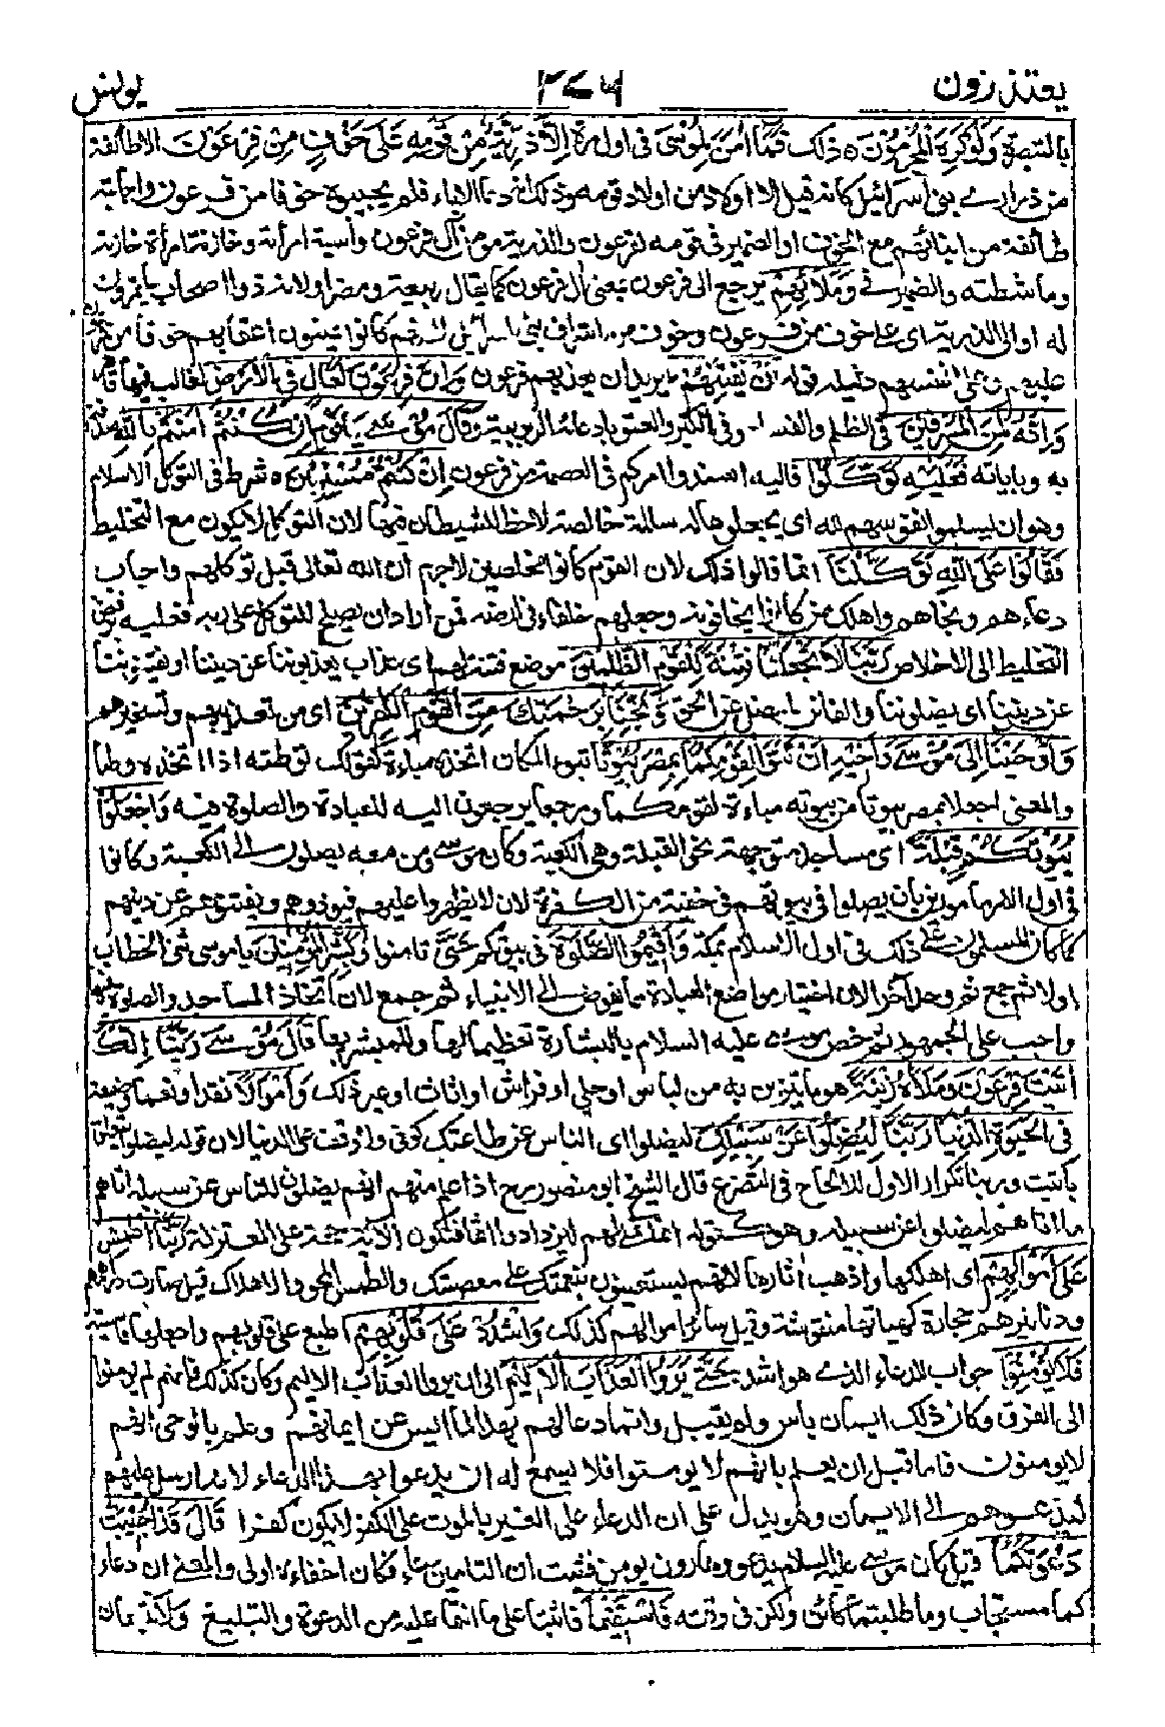 يعتذرون ٣٤٦ يونس
بالنبصرة وَلَوْ كَرِهَ الْمُجْرِمُوْنَ ذلك فَمَا اٰمَنَ لِمُوْسٰى فى اول امرة اِلَّا ذُرِّيَّةٌ مِّنْ قَوْمِهٖ عَلٰى خَوْفٍ مِّنْ فِرْعَوْنَ الا طائفة
من ذرارے بنى اسرائيل كانه قيل الا اولاد من اولاد قومه وذلك انه دعا الاباء فلم يجيبوه خوفا من فرعون واجابته
طائفة من ابنائهم مع الخوف او الضمير فى قومه لفرعون والذرية مومن آل فرعون وآسية امرأته وخازنه امرأة خازنه
وماشطته والضمير فے وَمَلَا۟ئِهِمْ يرجع الى فرعون بمعنى آل فرعون كما يقال ربيعة ومضر او لانه ذو اصحاب ياتمرون
له او الى الذرية اى على خوف من فرعون وخوف من اشراف بنى اسرائيل لانهم كانوا يمنعون اعقابهم خوفا من فرعون
عليهم وعلى انفسهم دليله قوله اَنْ يَّفْتِنَهُمْ يريد ان يعذبهم فرعون وَاِنَّ فِرْعَوْنَ لَعَالٍ فِى الْاَرْضِ لغالب فيها قاهر
وَاِنَّهٗ لَمِنَ الْمُسْرِفِيْنَ فى الظلم والفساد وفى الكبر والعتو بادعائه الربوبية وَقَالَ مُوْسٰے يٰقَوْمِ اِنْ كُنْتُمْ اٰمَنْتُمْ بِاللّٰهِ صدقتم
به وباياته فَعَلَيْهِ تَوَكَّلُوْا فاليه اسندوا امركم فى العصمة من فرعون اِنْ كُنْتُمْ مُّسْلِمِيْنَ شرط فى التوكل الاسلام
وهو ان يسلموا نفوسهم لله اى يجعلوها له سالمة خالصة لاحظ للشيطان فيها لان التوكل لا يكون مع التخليط
فَقَالُوْا عَلَى اللّٰهِ تَوَكَّلْنَا انما قالوا ذلك لان القوم كانوا مخلصين لاجرم ان الله تعالى قبل توكلهم واجاب
دعاءهم ونجاهم واهلك من كانوا يخافونه وجعلهم خلفاء فى ارضه فمن اراد ان يصلح للتوكل على ربه فعليه برفض
التخليط الى الاخلاص رَبَّنَا لَا تَجْعَلْنَا فِتْنَةً لِّلْقَوْمِ الظّٰلِمِيْنَ موضع فتنة لهم اى عذاب يعذبوننا عن ديننا او يفتنوننا
عن ديننا اى يضلوننا والفاتن المضل عن الحق وَنَجِّنَا بِرَحْمَتِكَ مِنَ الْقَوْمِ الْكٰفِرِيْنَ اى من تعذيبهم وتسخيرهم
وَاَوْحَيْنَا اِلٰى مُوْسٰے وَاَخِيْهِ اَنْ تَبَوَّاٰ لِقَوْمِكُمَا بِمِصْرَ بُيُوْتًا تبوء المكان اتخذه مباءة كقولك توطنه اذا اتخذه وطنا
والمعنى اجعلا بمصر بيوتا من بيوته مباءة لقومكما ومرجعا يرجعون اليه للعبادة والصلوة فيه وَاجْعَلُوْا
بُيُوْتَكُمْ قِبْلَةً اى مساجد متوجهة نحو القبلة وهى الكعبة وكان موسے ومن معه يصلون الے الكعبة وكانوا
فى اول الامر مامورين بان يصلوا فى بيوتهم فى خفية من الكفرة لان لا يظهروا عليهم فيوذوهم ويفتنوهم عن دينهم
كما كان المسلمون على ذلك فى اول الاسلام بمكة وَاَقِيْمُوا الصَّلٰوةَ فى بيوتكم حتى تامنوا وَبَشِّرِ الْمُؤْمِنِيْنَ يا موسى ثنى الخطاب
اولا ثم جمع ثم وحد آخرا لان اختيار مواضع العبادة مما يفوض الے الانبياء ثم جمع لان اتخاذ المساجد والصلوة فيها
واجب على الجمهور ثم خص موسے عليه السلام بالبشارة تعظيما لها وللمبشر بها قَالَ مُوْسٰے رَبَّنَا اِنَّكَ
اٰتَيْتَ فِرْعَوْنَ وَمَلَاَهٗ زِيْنَةً هو ما يتزين به من لباس او حلى او فراش او اثاث او غير ذلك وَاَمْوَالًا نقدا ونعما وضيعة
فِى الْحَيٰوةِ الدُّنْيَا رَبَّنَا لِيُضِلُّوْا عَنْ سَبِيْلِكَ ليضلوا اى الناس عن طاعتك كوفى ولا وقف على الدنيا لان قوله ليضلوا متعلق
بآتيت وربنا تكرار الاول للالحاح فى التضرع قال الشيخ ابو منصور رح اذا علم منهم انهم يضلون الناس عن سبيله اتاهم
ما اتاهم ليضلوا عن سبيله وهو كقوله انما نملى لهم ليزدادوا اثما فتكون الآية حجة على المعتزلة رَبَّنَا اطْمِسْ
عَلٰى اَمْوَالِهِمْ اى اهلكها واذهب اثارها لانهم يستعينون بنعمتك على معصيتك والطمس المحو والاهلاك قيل صارت دراهمهم
ودنانيرهم حجارة كهياتها منقوشة وقيل سائر اموالهم كذلك وَاشْدُدْ عَلٰى قُلُوْبِهِمْ اطبع على قلوبهم واجعلها قاسية
فَلَا يُؤْمِنُوْا جواب للدعاء الذى هو اشدد حَتّٰى يَرَوُا الْعَذَابَ الْاَلِيْمَ الى ان يروا العذاب الاليم وكان كذلك فانهم لم يومنوا
الى الغرق وكان ذلك ايمان ياس ولم يقبل وانما دعا لهم بهذا لما ايس عن ايمانهم وعلم بالوحى انهم
لا يومنون فاما قبل ان يعلم بانهم لا يومنوا فلا يسع له ان يدعوا بهذا الدعاء لانه ارسل اليهم
ليدعوهم الے الايمان وهو يدل على ان الدعاء على الغير بالموت على الكفر لا يكون كفرا قَالَ قَدْ اُجِيْبَتْ
دَّعْوَتُكُمَا قيل كان موسے عليه السلام يدعو وهارون يومن فثبت ان التامين دعاء فكان اخفاءه اولى والمعنى ان دعاء
كما مستجاب وما طلبتما كائن ولكن فى وقته فَاسْتَقِيْمَا فاثبتا على ما انتما عليه من الدعوة والتبليغ وَلَا تَتَّبِعٰنِ